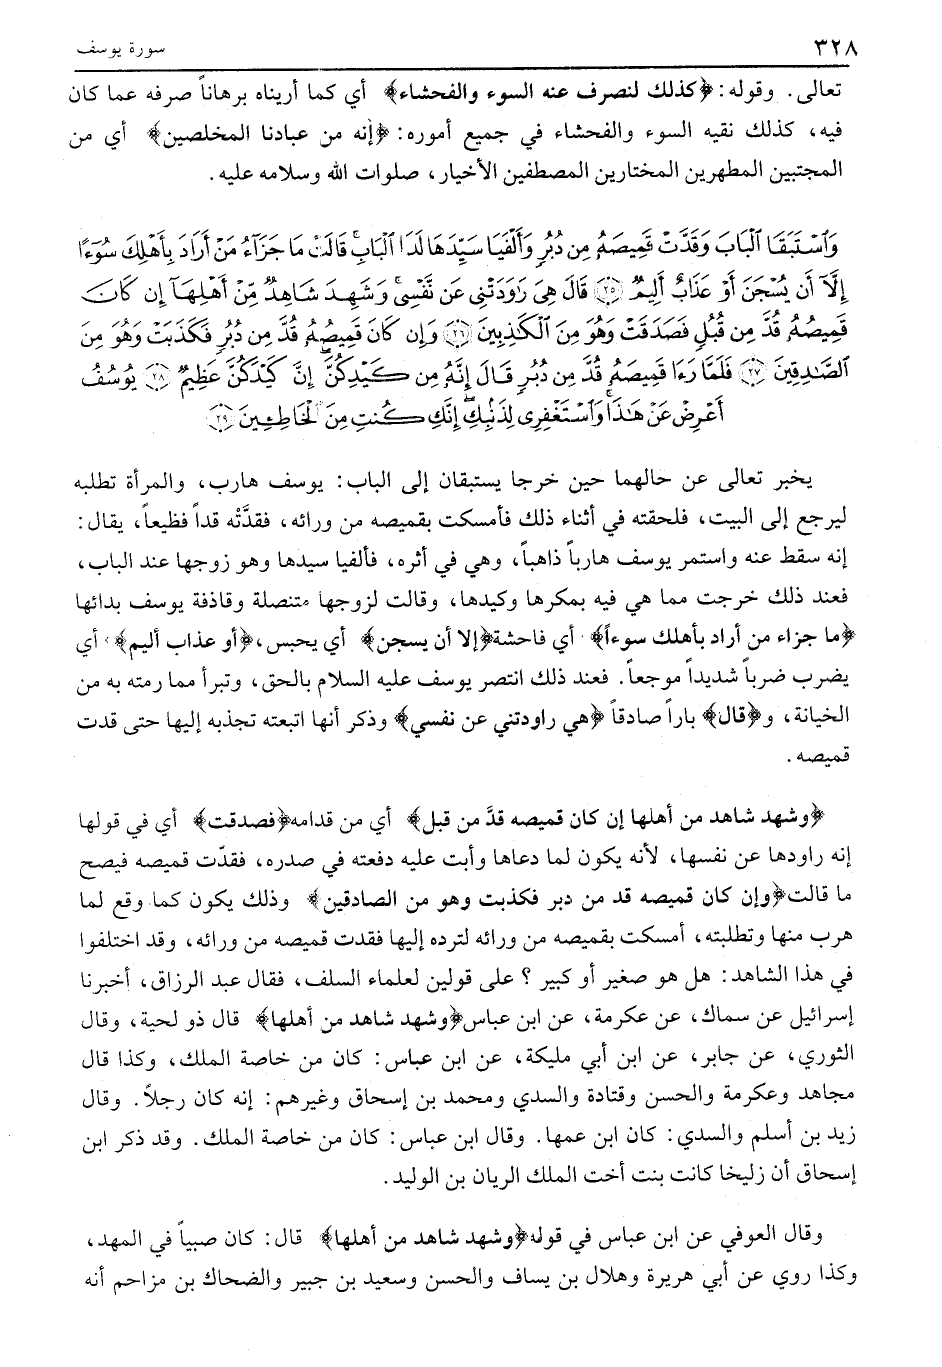 ٣٢٨ سورة يوسف
تعالى. وقوله: ﴿كذلك لنصرف عنه السوء والفحشاء﴾ أي كما أريناه برهاناً صرفه عما كان
فيه، كذلك نقيه السوء والفحشاء في جميع أموره: ﴿إنه من عبادنا المخلصين﴾ أي من
المجتبين المطهرين المختارين المصطفين الأخيار، صلوات الله وسلامه عليه.
وَٱسْتَبَقَا ٱلْبَابَ وَقَدَّتْ قَمِيصَهُۥ مِن دُبُرٍ وَأَلْفَيَا سَيِّدَهَا لَدَا ٱلْبَابِ ۚ قَالَتْ مَا جَزَآءُ مَنْ أَرَادَ بِأَهْلِكَ سُوٓءًا
إِلَّآ أَن يُسْجَنَ أَوْ عَذَابٌ أَلِيمٌ ﴿٢٥﴾ قَالَ هِىَ رَٰوَدَتْنِى عَن نَّفْسِى ۚ وَشَهِدَ شَاهِدٌ مِّنْ أَهْلِهَآ إِن كَانَ
قَمِيصُهُۥ قُدَّ مِن قُبُلٍ فَصَدَقَتْ وَهُوَ مِنَ ٱلْكَٰذِبِينَ ﴿٢٦﴾ وَإِن كَانَ قَمِيصُهُۥ قُدَّ مِن دُبُرٍ فَكَذَبَتْ وَهُوَ مِنَ
ٱلصَّٰدِقِينَ ﴿٢٧﴾ فَلَمَّا رَءَا قَمِيصَهُۥ قُدَّ مِن دُبُرٍ قَالَ إِنَّهُۥ مِن كَيْدِكُنَّ ۖ إِنَّ كَيْدَكُنَّ عَظِيمٌ ﴿٢٨﴾ يُوسُفُ
أَعْرِضْ عَنْ هَٰذَا ۚ وَٱسْتَغْفِرِى لِذَنۢبِكِ ۖ إِنَّكِ كُنتِ مِنَ ٱلْخَاطِـِٔينَ ﴿٢٩﴾
يخبر تعالى عن حالهما حين خرجا يستبقان إلى الباب: يوسف هارب، والمرأة تطلبه
ليرجع إلى البيت، فلحقته في أثناء ذلك فأمسكت بقميصه من ورائه، فقدَّتْه قداً فظيعاً، يقال:
إنه سقط عنه واستمر يوسف هارباً ذاهباً، وهي في أثره، فألفيا سيدها وهو زوجها عند الباب،
فعند ذلك خرجت مما هي فيه بمكرها وكيدها، وقالت لزوجها متنصلة وقاذفة يوسف بدائها
﴿ما جزاء من أراد بأهلك سوءاً﴾ أي فاحشة﴿إلا أن يسجن﴾ أي يحبس،﴿أو عذاب أليم﴾ أي
يضرب ضرباً شديداً موجعاً. فعند ذلك انتصر يوسف عليه السلام بالحق، وتبرأ مما رمته به من
الخيانة، و﴿قال﴾ باراً صادقاً ﴿هي راودتني عن نفسي﴾ وذكر أنها اتبعته تجذبه إليها حتى قدت
قميصه.
﴿وشهد شاهد من أهلها إن كان قميصه قدَّ من قبل﴾ أي من قدامه﴿فصدقت﴾ أي في قولها
إنه راودها عن نفسها، لأنه يكون لما دعاها وأبت عليه دفعته في صدره، فقدّت قميصه فيصح
ما قالت﴿وإن كان قميصه قد من دبر فكذبت وهو من الصادقين﴾ وذلك يكون كما وقع لما
هرب منها وتطلبته، أمسكت بقميصه من ورائه لترده إليها فقدت قميصه من ورائه، وقد اختلفوا
في هذا الشاهد: هل هو صغير أو كبير ؟ على قولين لعلماء السلف، فقال عبد الرزاق، أخبرنا
إسرائيل عن سماك، عن عكرمة، عن ابن عباس﴿وشهد شاهد من أهلها﴾ قال ذو لحية، وقال
الثوري، عن جابر، عن ابن أبي مليكة، عن ابن عباس: كان من خاصة الملك، وكذا قال
مجاهد وعكرمة والحسن وقتادة والسدي ومحمد بن إسحاق وغيرهم: إنه كان رجلاً. وقال
زيد بن أسلم والسدي: كان ابن عمها. وقال ابن عباس: كان من خاصة الملك. وقد ذكر ابن
إسحاق أن زليخا كانت بنت أخت الملك الريان بن الوليد.
وقال العوفي عن ابن عباس في قوله﴿وشهد شاهد من أهلها﴾ قال: كان صبياً في المهد،
وكذا روي عن أبي هريرة وهلال بن يساف والحسن وسعيد بن جبير والضحاك بن مزاحم أنه